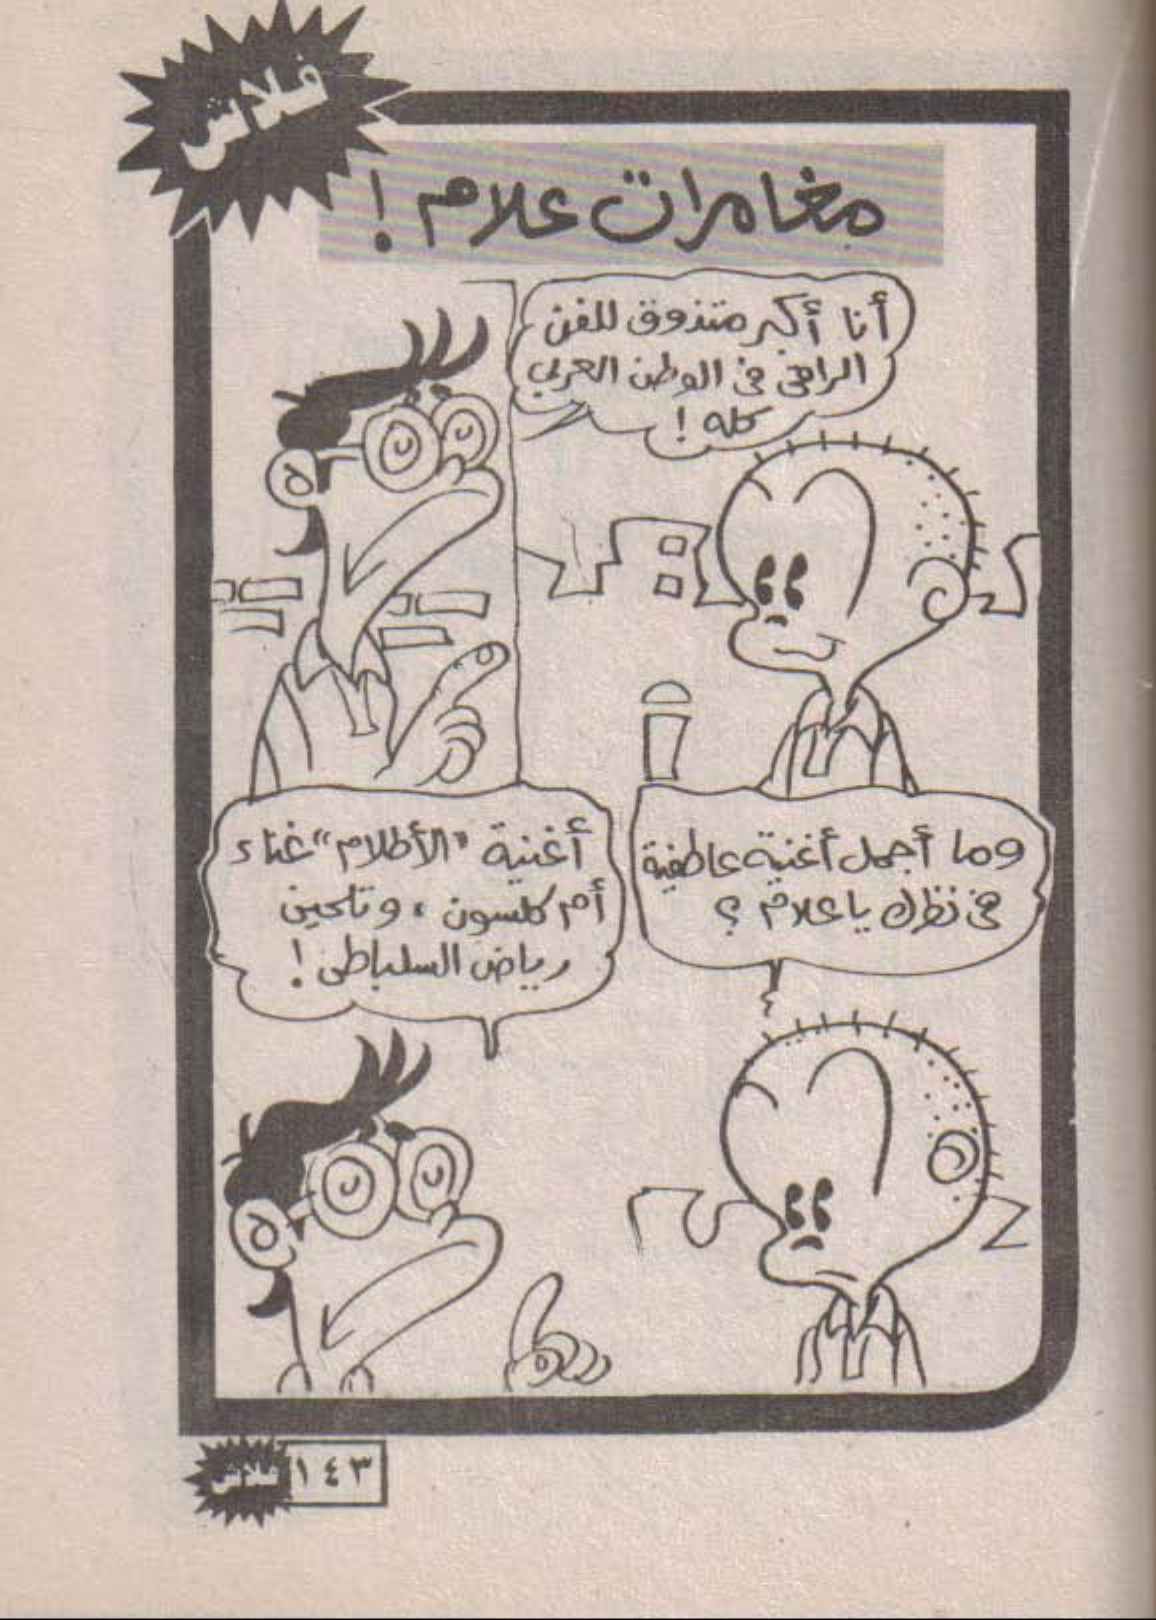 فلاش
مغامرات علام !
أنا أكبر متذوق للفن
الراقى فى الوطن العربى
كله !
وما أجمل أغنية عاطفية
فى نظرك يا علام ؟
أغنية "الأظلام" غناء
أم كلسون ، وتلحين
رياض السلباطى !
فلاش ١٤٣